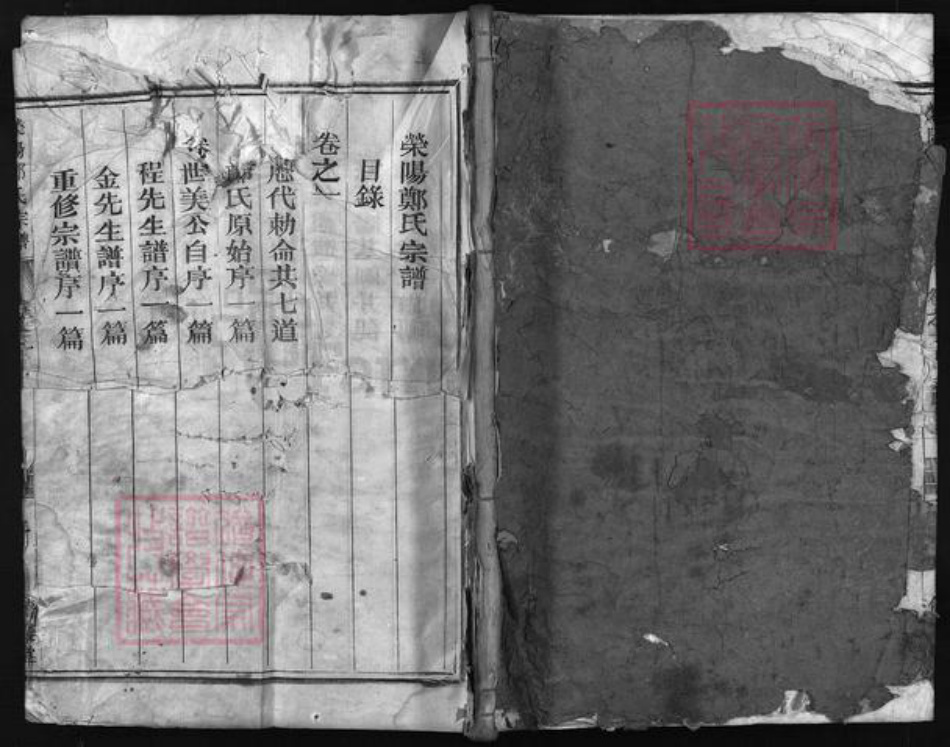 滎陽鄭氏宗譜
目錄
卷之一
歷代勅命共七道
鄭氏原始序一篇
世美公自序一篇
程先生譜序一篇
金先生譜序一篇
重修宗譜序一篇